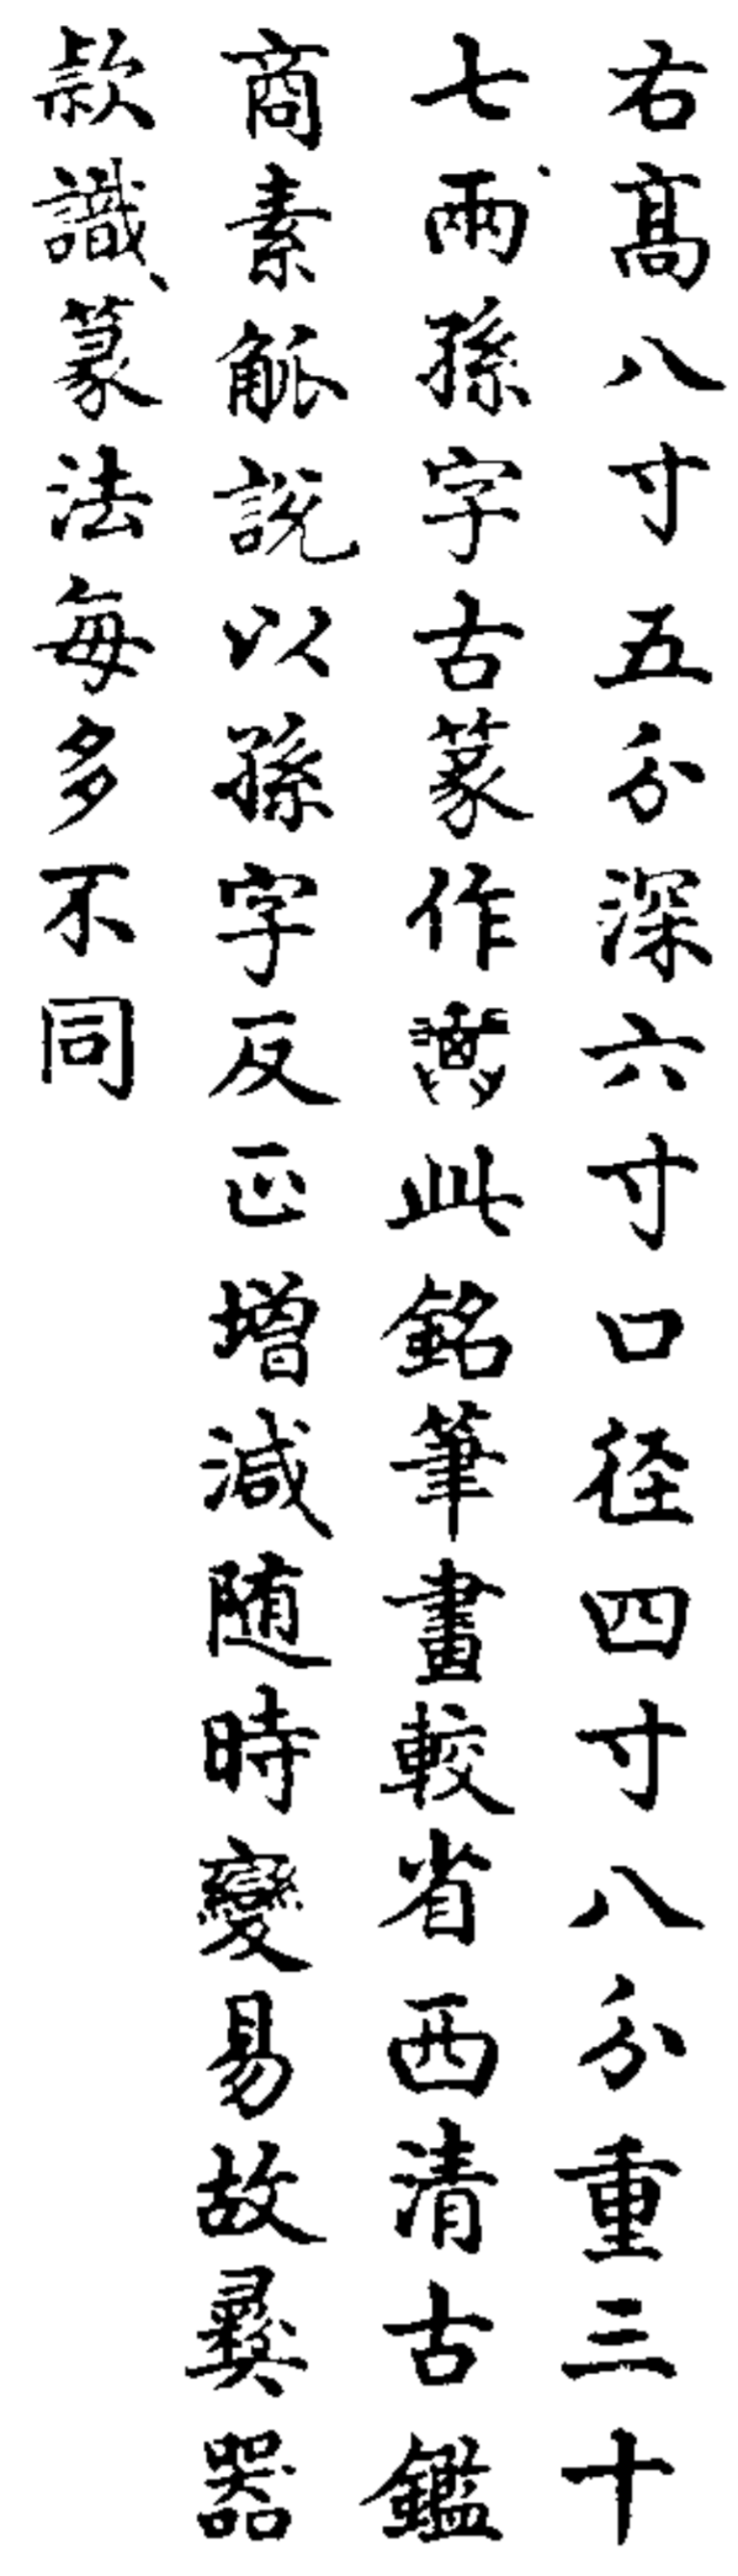 右髙八寸五分深六寸口径四寸八分重三十
七兩孫字古篆作此銘筆畫較省西清古鑑
商素觚説以孫字反正增減随時變易故彞器
款識篆法每多不同